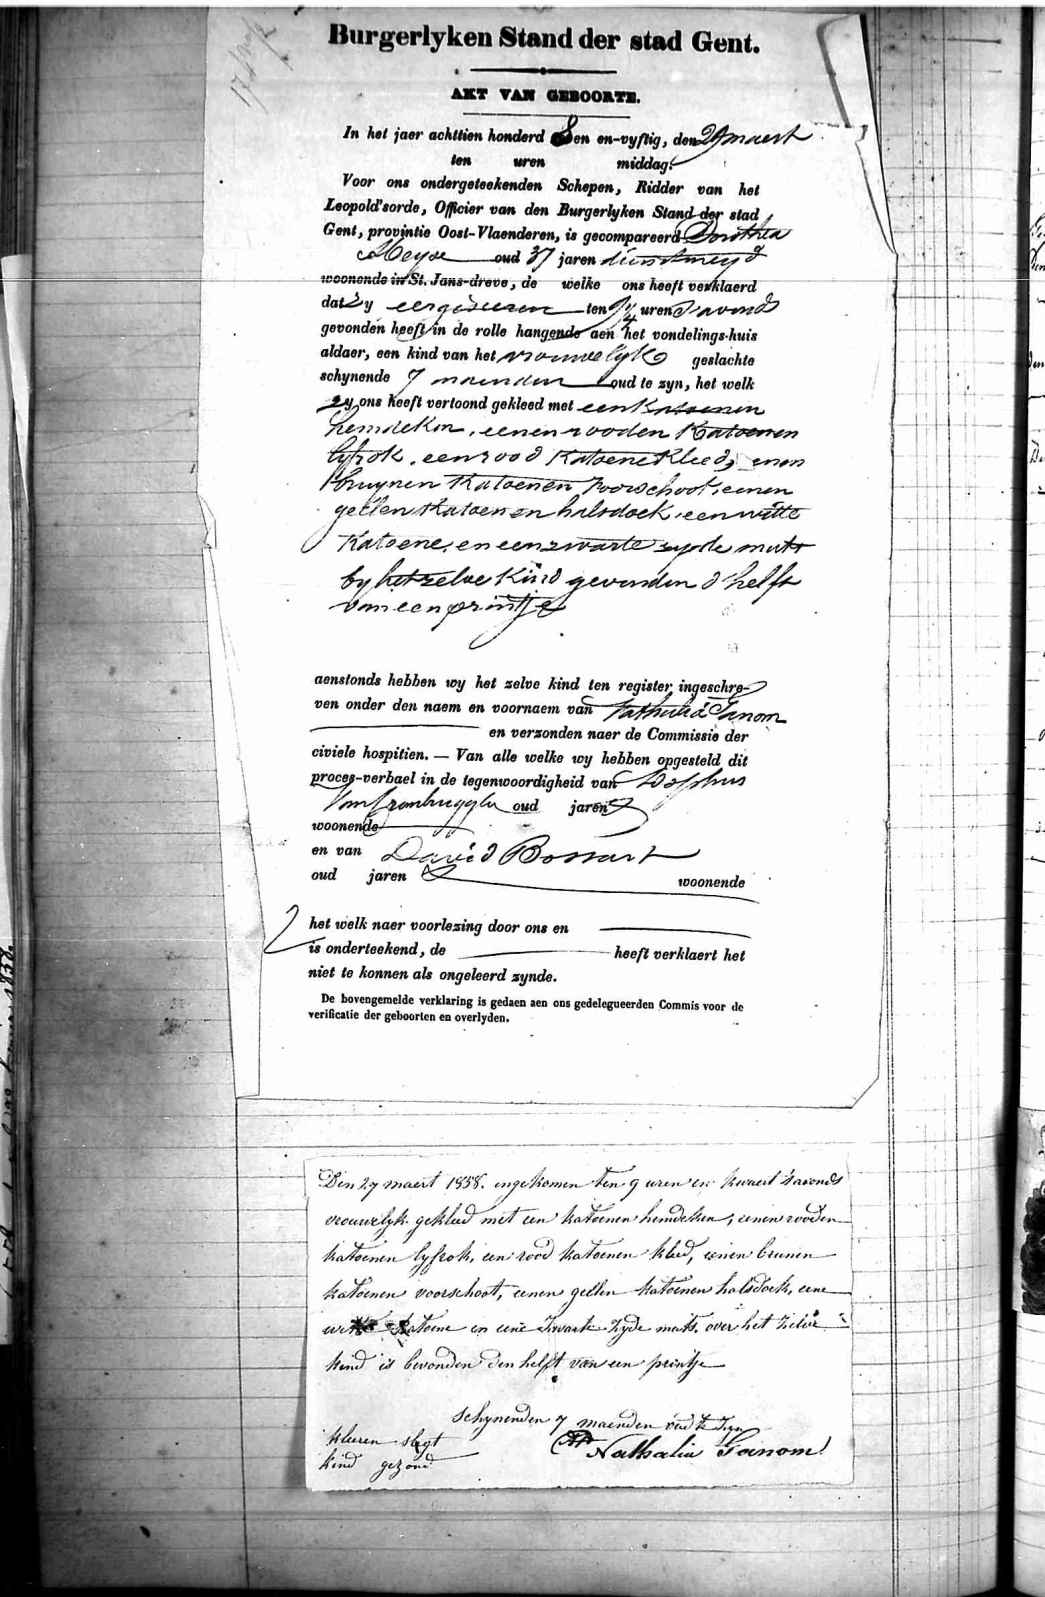 Burgerlyken Stand der stad Gent.
AKT VAN GEBOORTE.
In het jaer achttien honderd 8en en-vyftig, den 29 maert
ten uren middag.
Voor ons ondergeteekenden Schepen, Ridder van het
Leopold'sorde, Officier van den Burgerlyken Stand der stad
Gent, provintie Oost-Vlaenderen, is gecompareerd Dorothea
oud 37 jaren dienstmeyd
woonende in St. Jans-dreve, de welke ons heeft verklaerd
dat zy eergisteren ten 9 1/4 uren s'avonds
gevonden heeft in de rolle hangende aen het vondelings-huis
aldaer, een kind van het vrouwelyk geslachte
schynende 7 maenden oud te zyn, het welk
zy ons heeft vertoond gekleed met een katoenen
hemdeken, eenen rooden katoenen
lyfrok, een rood katoene kleed, eenen
bruynen katoenen voorschoot, eenen
geelen katoenen halsdoek, een witte
katoene, en een zwarte zyde muts
by het zelve kind gevonden d'helft
van een printje
aenstonds hebben wy het zelve kind ten register ingeschre-
ven onder den naem en voornaem van Nathalia Ganom
en verzonden naer de Commissie der
civiele hospitien. — Van alle welke wy hebben opgesteld dit
proces-verbael in de tegenwoordigheid van
oud jaren
woonende
en van David Bossart
oud jaren woonende
het welk naer voorlezing door ons en
is onderteekend, de heeft verklaert het
niet te konnen als ongeleerd zynde.
De bovengemelde verklaring is gedaen aen ons gedelegueerden Commis voor de
verificatie der geboorten en overlyden.
Den 27 maert 1858. ingekomen ten 9 uren en kwaert s'avonds
vrouwelyk gekleed met een katoenen hemdeken, eenen rooden
katoenen lyfrok, een rood katoenen kleed, eenen brunen
katoenen voorschoot, eenen geelen katoenen halsdoek, eene
witte katoene en eene zwarte zyde muts. over het zelve
kind is bevonden den helft van een printje
schynenden 7 maenden oud te zyn
kleeren slegt
kind gezond
Nathalia Ganom